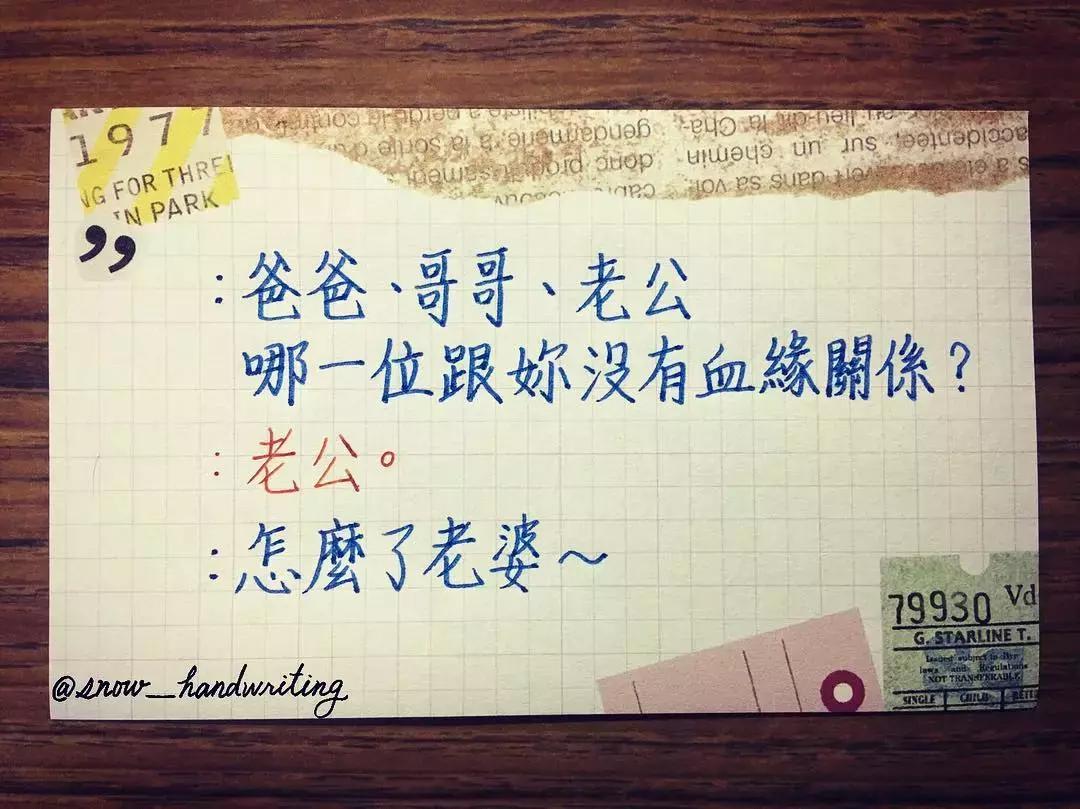 1977
NG FOR THREE
IN PARK
gendarmerie, à la sortie d'u
donc prod
accidentée, sur un chemin
au lieu-dit la Châ-
"
：爸爸、哥哥、老公
哪一位跟妳沒有血緣關係？
：老公。
：怎麼了老婆～
79930 Vd
G. STARLINE T.
Issued subject to Bye-
laws and Regulations
NOT TRANSFERABLE
SINGLE CHILD RETU
@snow__handwriting